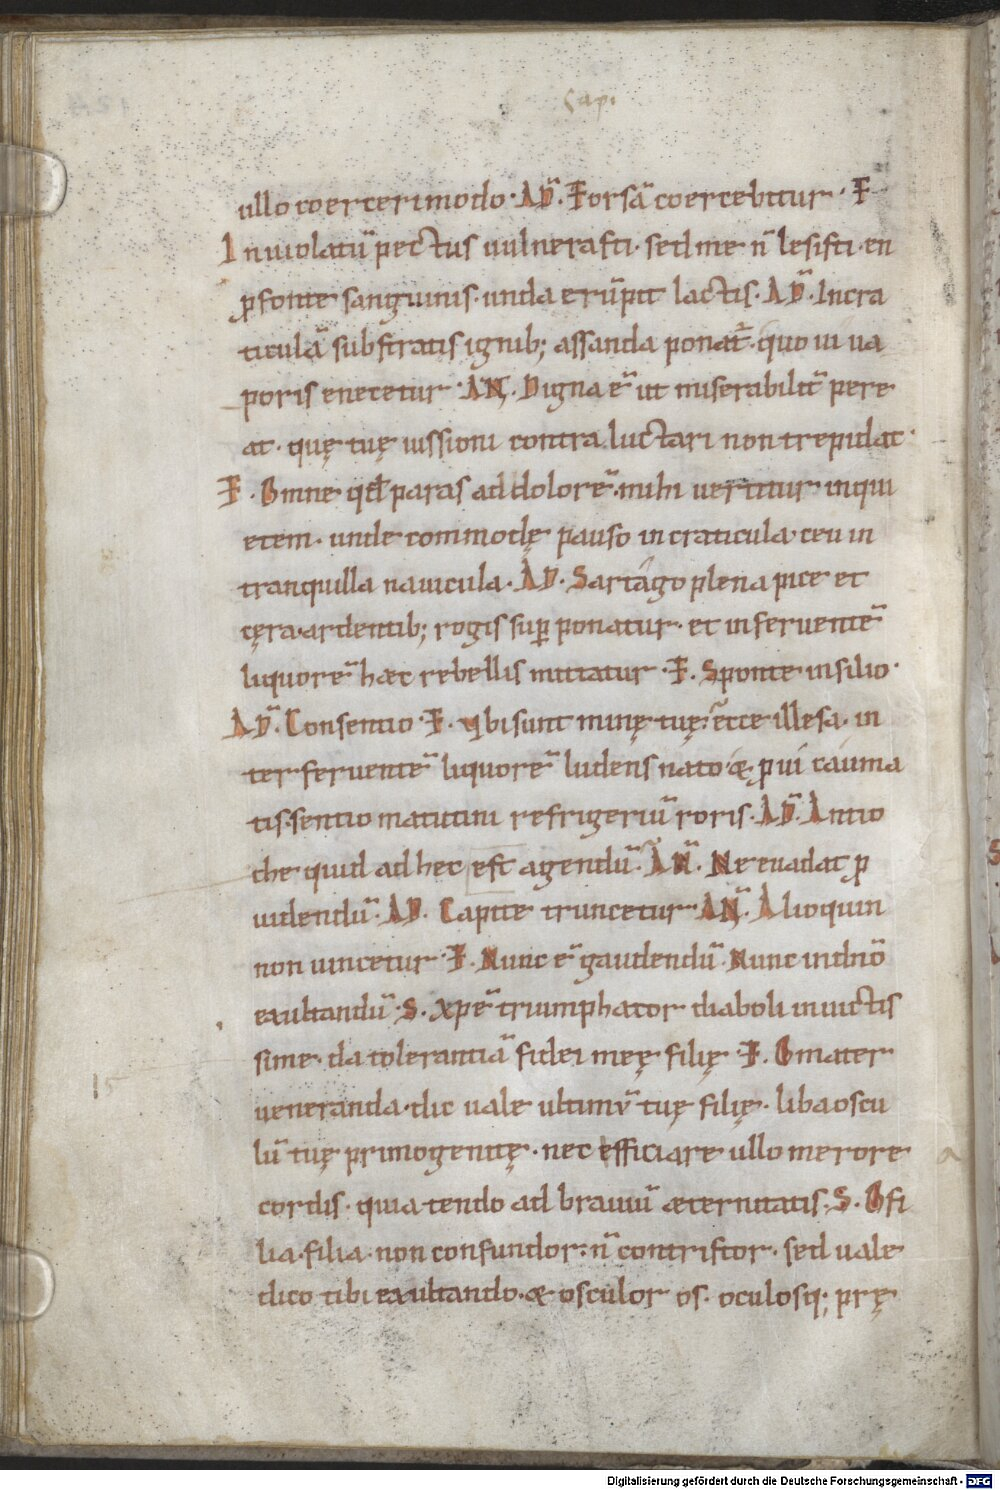 Sapi
ullo coerceri modo · AD̄. Forsā coercebitur · F
Inuiolatū pectus uulnerasti · sed me n̄ lesisti · en
ꝓ fonte sanguinis · unda erūpit lactis · AD̄ · Incra
ticulā substratis ignib; assanda ponat᷑ · quo ui ua
poris enecetur · AN̄. Digna ē ut miserabilit̄ pere
at · quę tuę iussioni contra luctari non trepidat ·
F · Omne qd̄ paras ad dolorē · mihi uertitur inqui
etem · unde commodę pauso in craticula · ceu in
tranquilla nauicula · AD · Sartago plena pice et
cęra · ardentib; rogis suꝑ ponatur · et in feruentē
liquorē hæc rebellis mittatur · F. Sponte insilio ·
AD̄. Consentio · F · vbi sunt minę tuę · ecce illesa · in
ter feruentē liquorē ludens nato · & ꝓ ui cauma
tis · sentio matutini refrigeriū roris · AD̄. Antio
che quid ad hec est agendū · AN̄. Ne euadat ꝓ
uidendū · AD. Capite truncetur · AN̄. Alioquin
non uincetur · F · Nunc ē gaudendū · Nunc in dn̄o
exultandū · S. xp̄e triumphator diaboli inuictis
sime · da tolerantiā fidei meę filię · F. O mater
ueneranda · dic uale ultimū tuę filię · liba oscu
lū tuę primogenitę · nec efficiare ullo merore
cordis · quia tendo ad brauiū æternitatis · S · O fi
lia · filia · non confundor · n̄ contristor · sed uale
dico tibi exultando · & osculor os · oculosq; prę
15
a
Digitalisierung gefördert durch die Deutsche Forschungsgemeinschaft · DFG